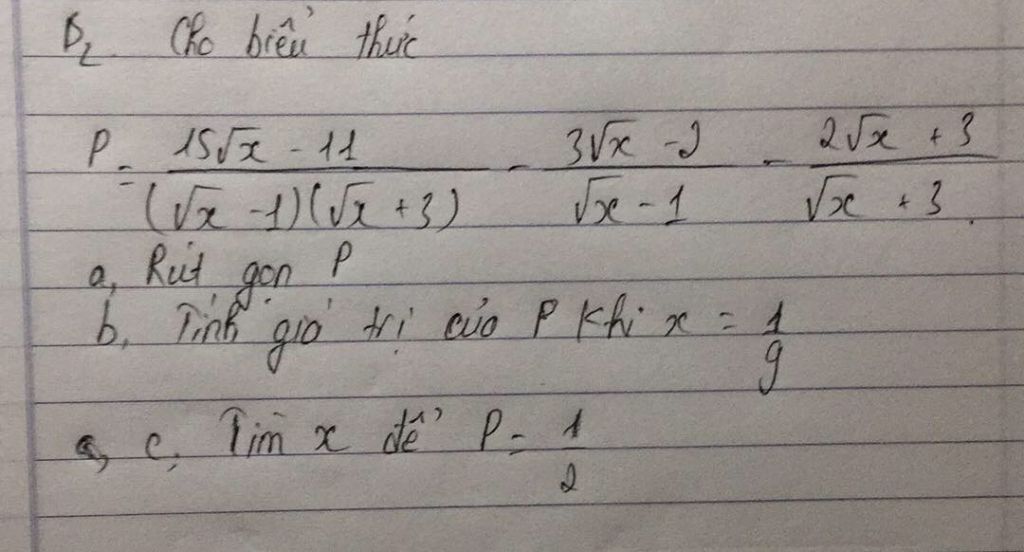 B2 Cho biểu thức
P = (15√x - 11)/((√x - 1)(√x + 3)) - (3√x - 2)/(√x - 1) - (2√x + 3)/(√x + 3).
a, Rút gọn P
b, Tính giá trị của P khi x = 1/9
c, Tìm x để P = 1/2